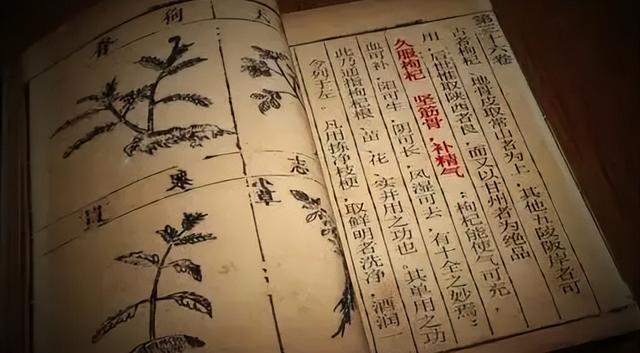 第三十六卷
古者枸杞、地骨皮取常山者为上，其他五陵阪岸者可
用，后世惟取陕西者良，而又以甘州者为绝品
久服枸杞 坚筋骨，补精气 枸杞能使气可充，
血可补，阳可生，阴可长，风湿可去，有十全之妙焉；
此乃通指枸杞根、苗、花、实并用之功也，其单用之功
今列于左，凡用拣净枝梗，取鲜明者洗净，酒润一
大
狗
脊
志
小草